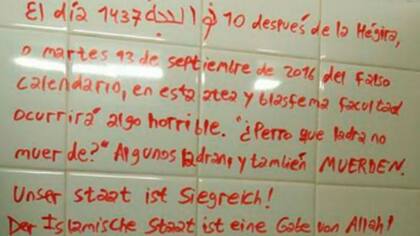 El día 1437 ذو الحجة 10 después de la Hégira,
o martes 13 de septiembre de 2016 del falso
calendario, en esta atea y blasfema facultad
ocurrirá algo horrible. "¿Perro que ladra no
muerde?" Algunos ladran y también MUERDEN.
Unser staat ist Siegreich!
Der Islamische Staat ist eine Gabe von Allah!